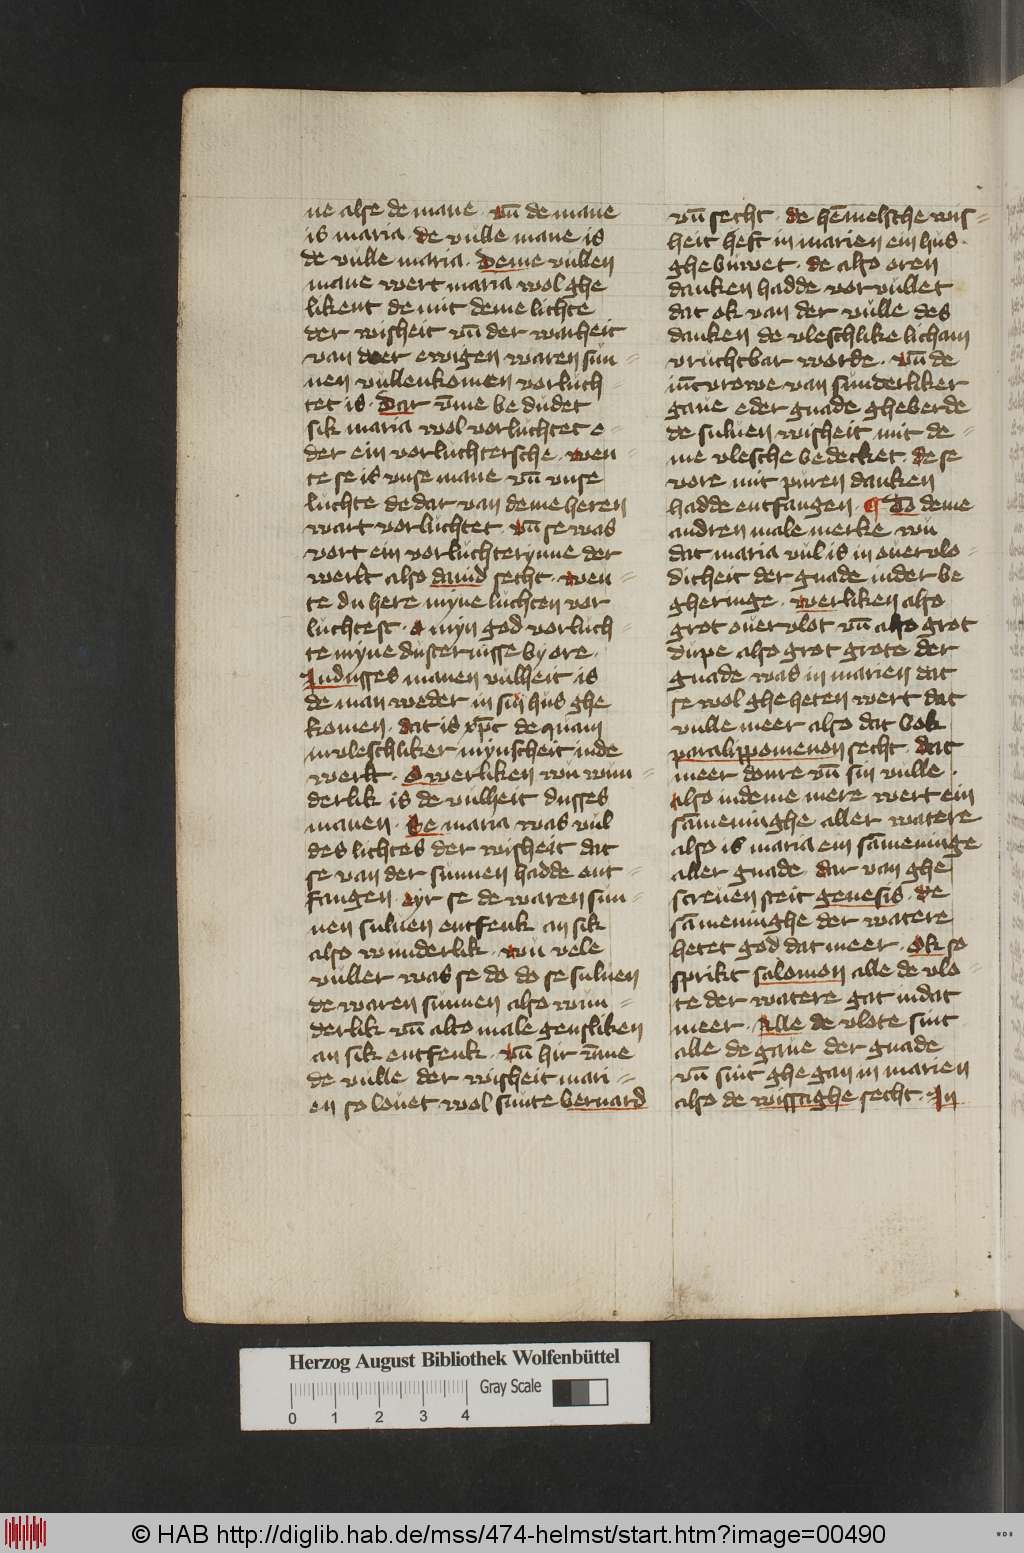 ne alse de mane . vn̄ de mane
is maria . de vulle mane is
de vulle maria . Deme vullen
mane wert maria wol ghe
likent de mit deme lichte
der wisheit vn̄ der warheit
van der ewigen waren sun-
nen vullenkomen vorluch-
tet is . Dar v̄me be dudet
sik maria wol vorluchtet e-
der ein vorluchtersche . wen-
te se is vnse mane vn̄ vnse
luchte de dar van deme heren
wart vorluchtet . vn̄ se was
vort ein vorluchterynne der
werlt also dauid secht . wen-
te du here myne luchten vor
luchtest . o myn god vorluch-
te myne dusternisse by ore .
In dusses manen vulheit is
de man weder in sin hus ghe
komen . dat is xp̄c de quam
in vleschliker mynscheit in de
werlt . O werliken wu wun-
derlik is de vulheit dusses
manen . De maria was vul
des lichtes der wisheit dat
se van der sunnen hadde ent-
fangen . eyr se de waren sun-
nen suluen entfenk an sik
also wunderlik . wu vele
vuller was se do do se suluen
de waren sunnen also wun-
derlik vn̄ alto male gensliken
an sik entfenk . vn̄ hir v̄me
de vulle der wisheit mari-
en so louet wol sunte bernard
vn̄ secht . de hēmelsche wis-
heit heft in marien ein hus .
ghe buwet . de also oren
danken hadde vor vullet
dat ok van der vulle des
danken de vleschlike licham
vruchtbar worde . vn̄ de
iūcvrowe van sunderliker
gaue eder gnade gheberde
de suluen wisheit mit de-
me vlesche bedecket . de se
vore mit puren danken
hadde entfangen . ¶ To deme
andren male merke wu
dat maria vul is in ouervlo-
dicheit der gnade in der be
gheringe . werliken also
grot ouervlot vn̄ also grot
dupe also grot grote der
gnade was in marien dat
se wol ghe heten wert dat
vulle meer also dat bok
paralippomenon secht . dat
meer donre vn̄ sin vulle .
also in deme mere wert ein
sāmeninghe aller watere
also is maria ein sāmeninge
aller gnade . dar van ghe
screuen steit genesis . de
sāmeninghe der watere
hetet god dat meer . Ok so
sprikt salomon alle de vlo-
te der watere gat in dat
meer . Alle de vlote sint
alle de gaue der gnade
vn̄ sint ghe gan in marien
also de wisstighe secht . In
Herzog August Bibliothek Wolfenbüttel
Gray Scale
0 1 2 3 4
© HAB http://diglib.hab.de/mss/474-helmst/start.htm?image=00490